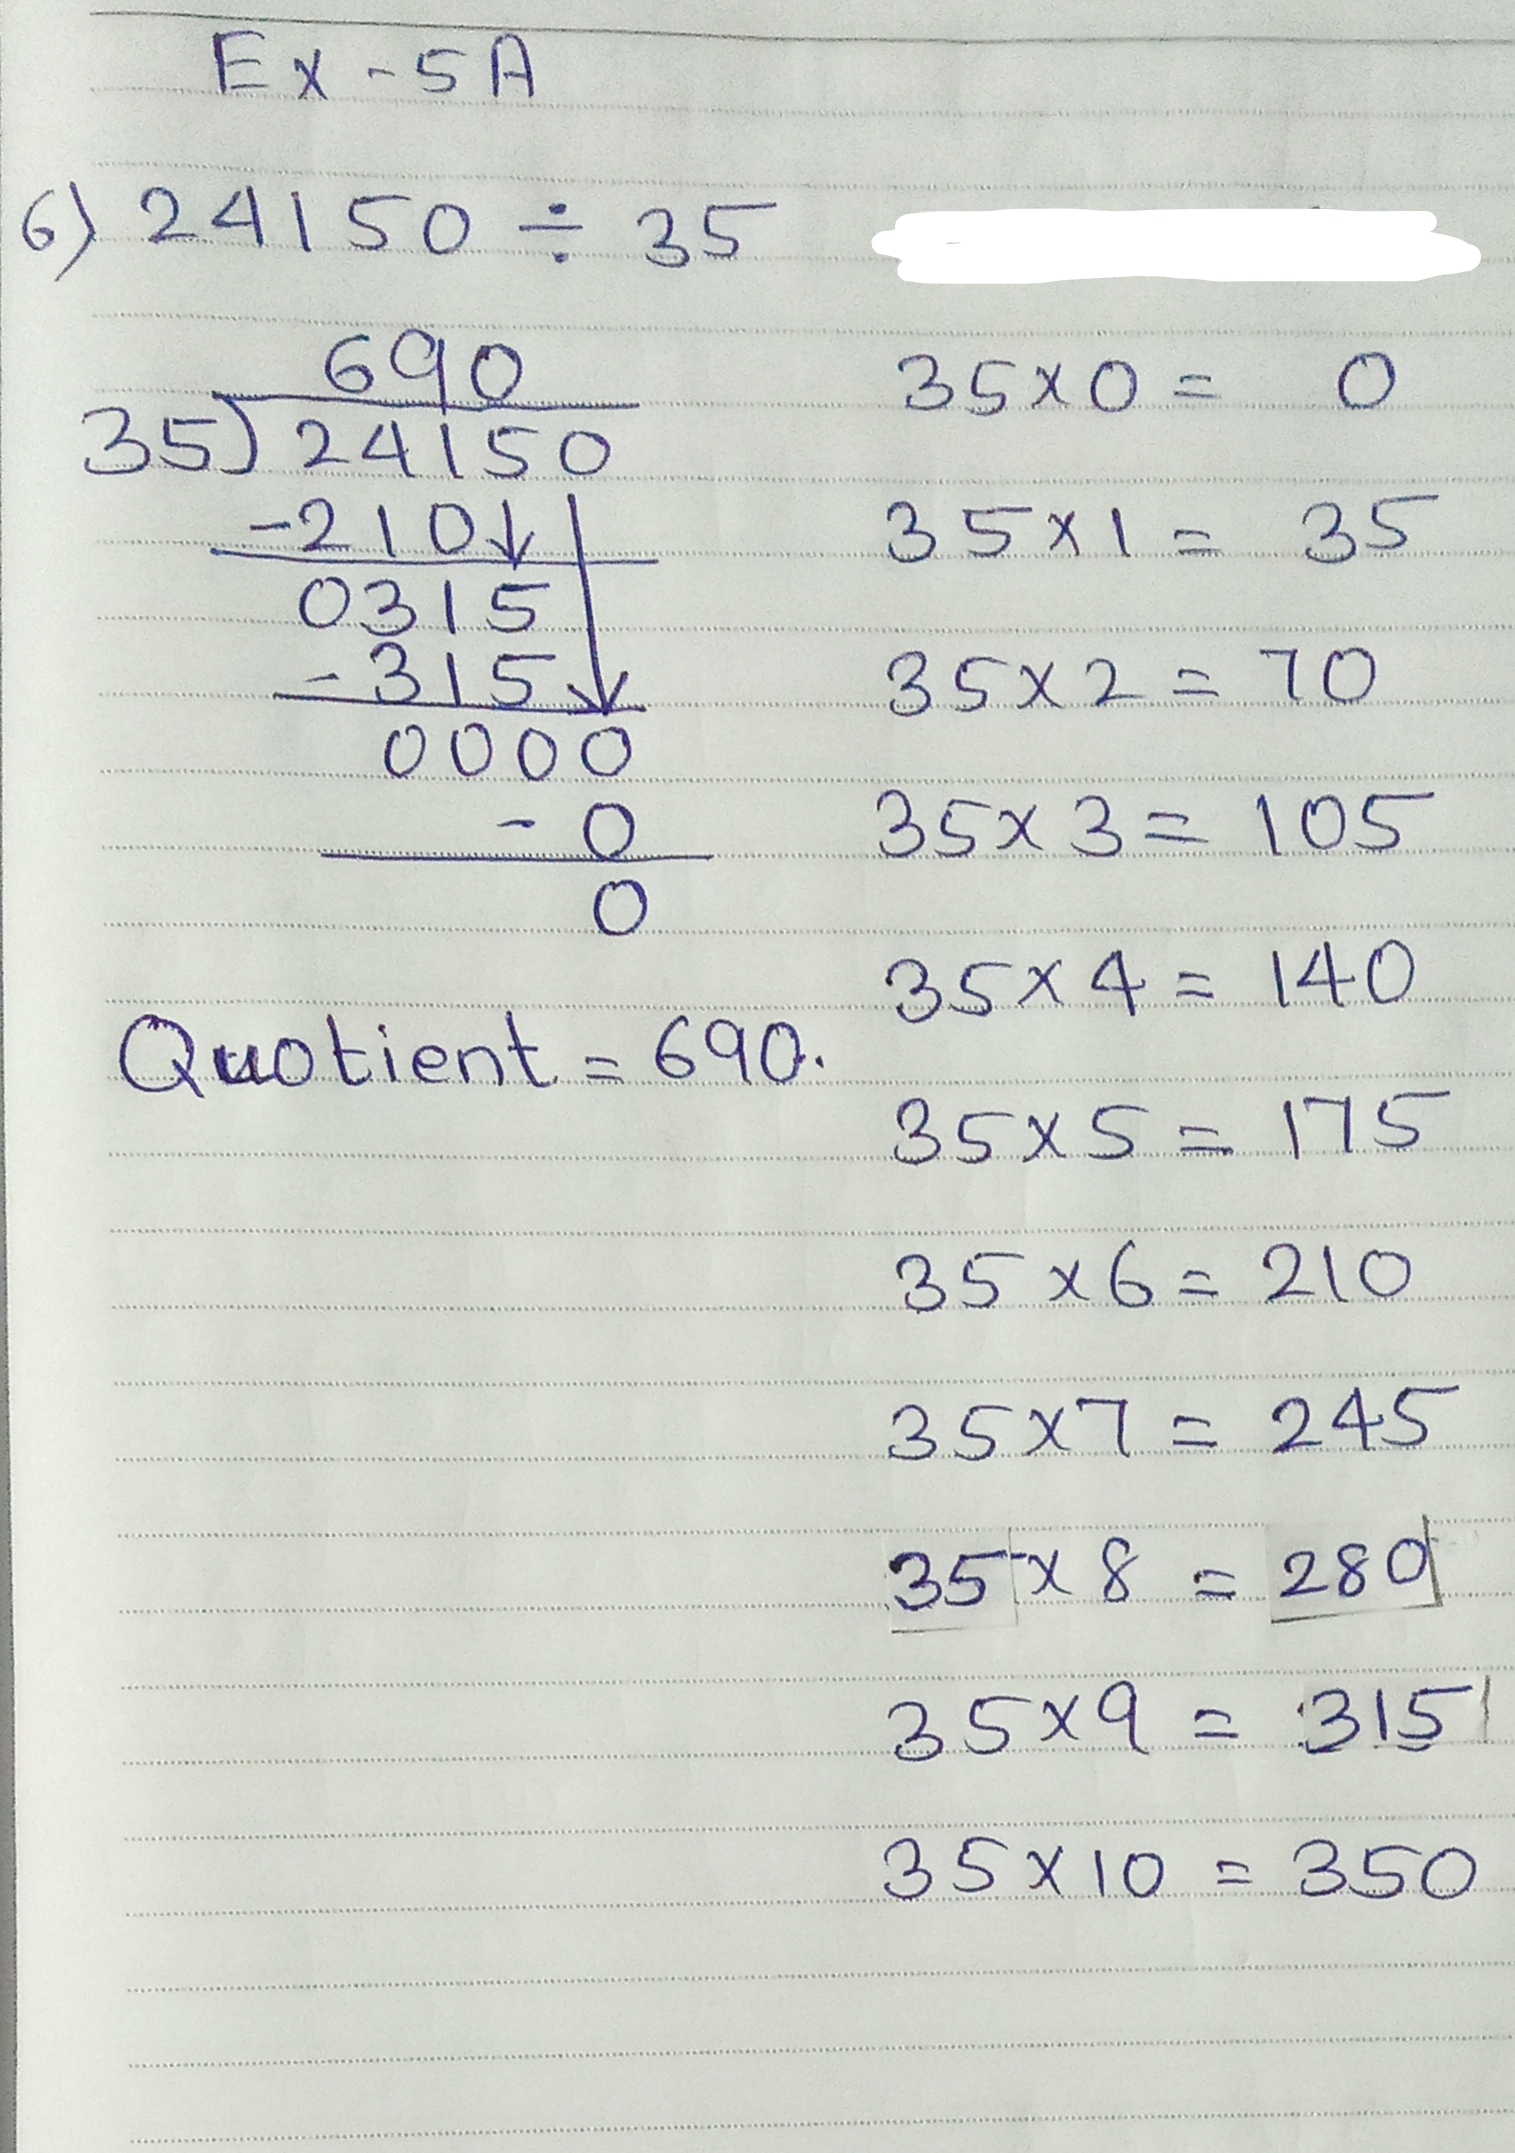 Ex - 5A
6) 24150 ÷ 35
690
35) 24150
-210
0315
-315
0000
- 0
0
Quotient = 690.
35 x 0 = 0
35 x 1 = 35
35 x 2 = 70
35 x 3 = 105
35 x 4 = 140
35 x 5 = 175
35 x 6 = 210
35 x 7 = 245
35 x 8 = 280
35 x 9 = 315
35 x 10 = 350